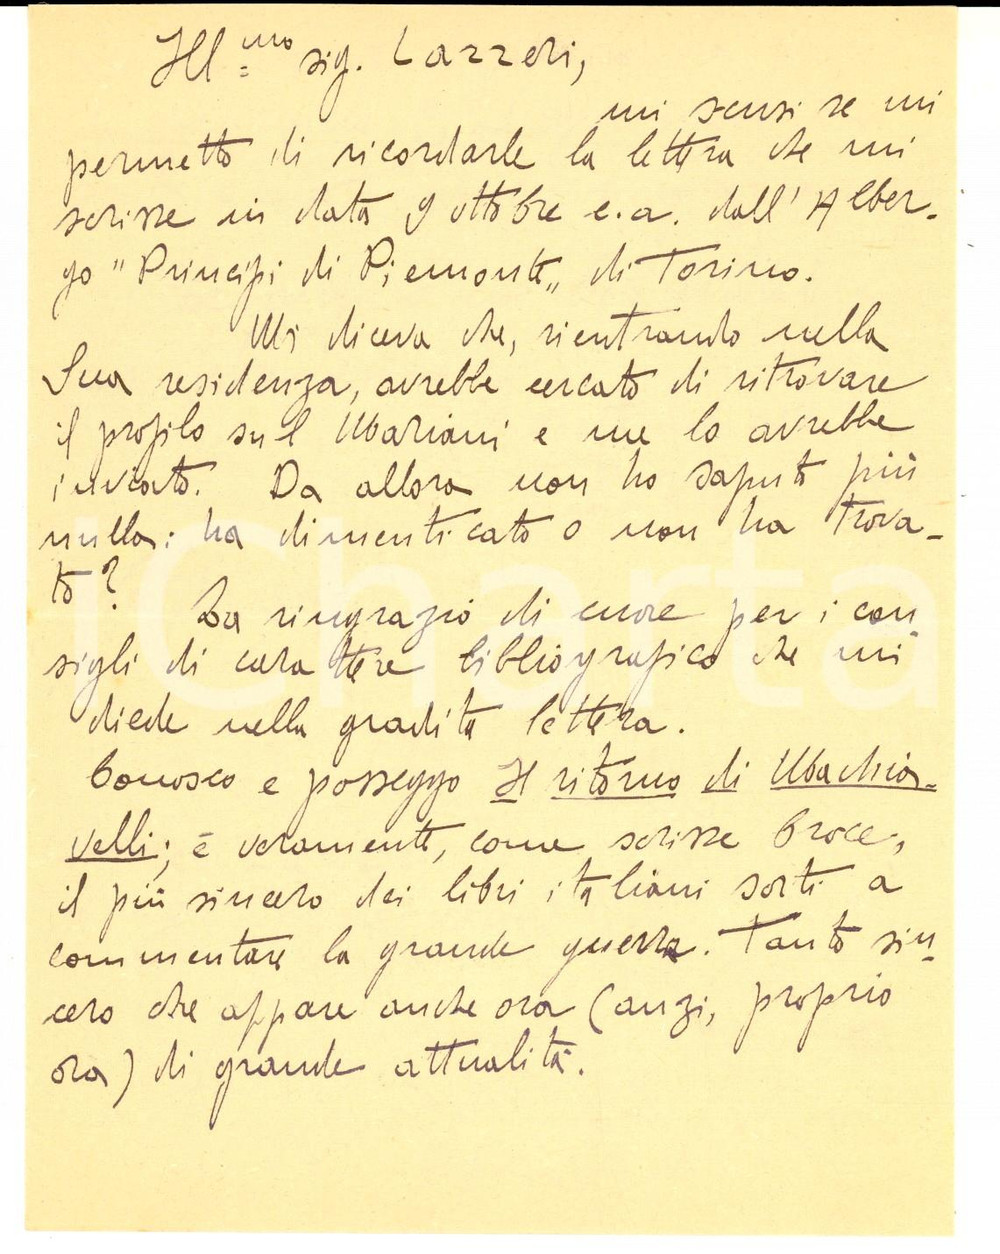 Ill.mo sig. Lazzeri,
mi scusi se mi
permetto di ricordarle la lettera che mi
scrisse in data 9 ottobre c.a. dall'Alber-
go "Principi di Piemonte" di Torino.
Mi diceva che, rientrando nella
Sua residenza, avrebbe cercato di ritrovare
il profilo sul Mariani e me lo avrebbe
inviato. Da allora non ho saputo più
nulla: ha dimenticato o non ha trova-
to?
La ringrazio di cuore per i con-
sigli di carattere bibliografico che mi
diede nella gradita lettera.
Conosco e posseggo Il ritorno di Machia-
velli; è veramente, come scrisse Croce,
il più sincero dei libri italiani sorti a
commentare la grande guerra. Tanto sin-
cero che appare anche ora (anzi, proprio
ora) di grande attualità.
iCharta